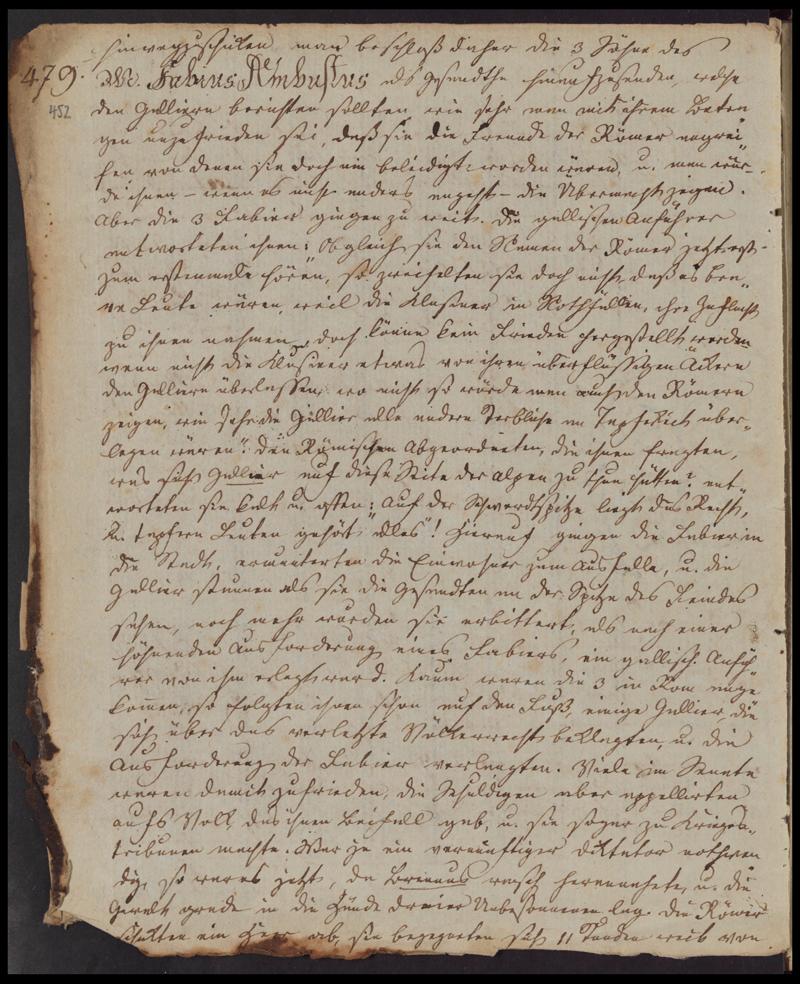 hinwegzuschicken man beschloß daher die 3 Söhne des
479. M. Fabius Ambustus als Gesandte hinaufzusenden, welche
452 den Galliern berichten sollten, wie sehr man mit ihrem Betra
gen unzufrieden sei, daß sie die Freunde der Römer angrei
fen von denen sie doch nie beleidigt worden wären, u. man wür-
de ihnen - wenn es nicht anders angeht - die Übermacht zeigen.
Aber die 3 Fabier gingen zu weit. Die gallischen Anführer
antworteten ihnen: Obgleich sie den Namen der Römer jetzt erst
zum erstenmale hören, so zweifelten sie doch nicht, daß es bra-
ve Leute wären, weil die Klusiner in Nothfällen, ihre Zuflucht
zu ihnen nahmen, doch könne kein Frieden hergestellt werden
wenn nicht die Klusiner etwas von ihren überflüssigen Äckern
den Galliern überlassen, wo nicht so würde man auch den Römern
zeigen, wie sehr die Gallier alle andern Sterbliche an Tapferkeit über-
legen wären". Den Römischen Abgeordneten, die ihnen fragten,
was sich Gallier auf diese Seite der Alpen zu thun hätten? ant-
worteten sie kalt u. offen: "Auf der Schwerdtspitze liegt das Recht,
u. tapfern Leuten gehört alles"! Hierauf gingen die Fabier in
die Stadt, ermunterten die Einwohner zum Ausfalle, u. die
Gallier staunen als sie die Gesandten an der Spitze des Feindes
sehen, noch mehr wurden sie erbittert, als nach einer
höhnenden Ausforderung eines Fabiers, ein gallisch. Anfüh
rer von ihm erlegt ward. Kaum waren die 3 in Rom ange
kommen, so folgten ihnen schon auf den Fuß, einige Gallier, die
sich über das verletzte Völkerrecht beklagten, u. die
Ausforderung der Fabier verlangten. Viele im Senate
waren damit zufrieden, die Schuldigen aber appellirten
aufs Volk das ihnen Beifall gab, u. sie sogar zu Kriegs-
tribunen machte. War je ein vernünftiger Diktator nothwen
dig, so war es jetzt, da Brennus rasch herannahete, u. die
Gewalt grade in die Hände dreier Unbesonnenen lag. Die Römer
schickten ein Heer ab, sie begegneten sich 11 Stunden weit von